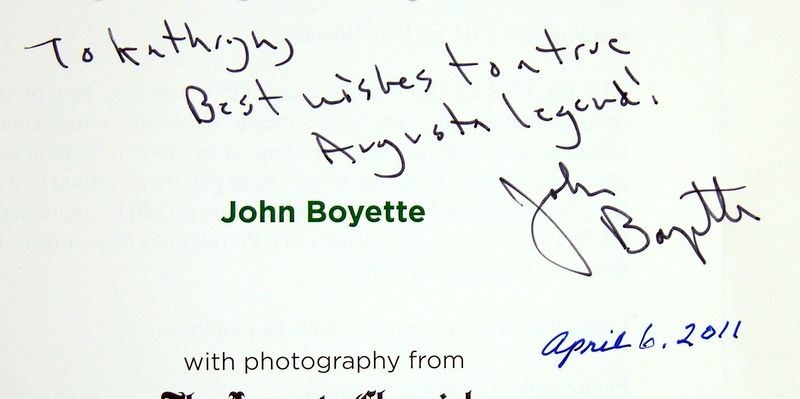 To Kathryn,
Best wishes to a true
Augusta legend!
John
Boyette
John Boyette
April 6, 2011
with photography from